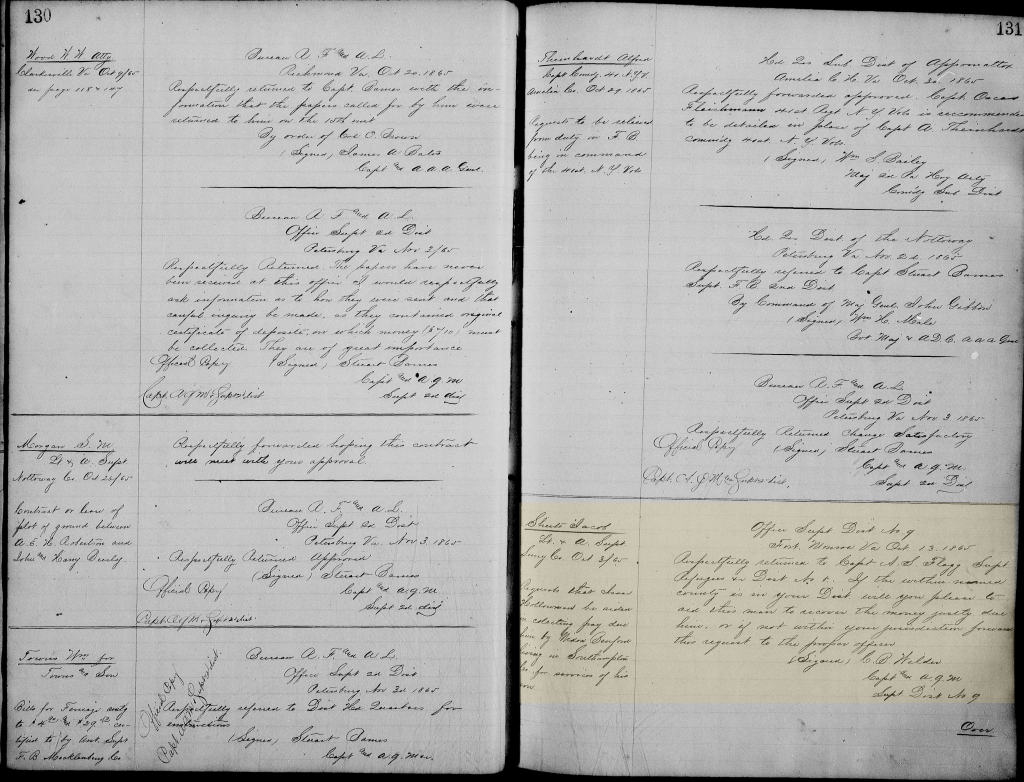 130
Wood W. W. Atty
Clarksville Va Oct 9/65
see page 118 & 147
Bureau R. F. and A. L.
Richmond Va. Oct 20. 1865
Respectfully returned to Capt. Barnes with the in-
formation that the papers called for by him were
returned to him on the 15th inst
By order of Col O. Brown
(Signed) James A Bates
Capt and A. A. A. Genl.
Bureau R. F. and A. L.
Office Supt 2d Dist
Petersburg Va Nov 2/65
Respectfully Returned. The papers have never
been received at this office. I would respectfully
ask information as to how they were sent and that
careful inquiry be made, as they contained original
certificate of deposite, on which money must
be collected. They are of great importance
Official Copy (Signed) Stuart Barnes
Capt and A. Q. M
Capt. A.Q.M. & Supt 2d Dist
Morgan S. M.
Lt & A. Supt
Nottoway Co. Oct 26/65
Contract or lease of
plot of ground between
and
John and Harry
Respectfully forwarded hoping this contract
will meet with your approval
Bureau R. F. and A. L.
Office Supt 2d Dist
Petersburg Va Nov 3. 1865
Respectfully Returned Approved
(Signed) Stuart Barnes
Official Copy Capt and A. Q. M
Supt 2d Dist
Towns Wm for
Towns and Son
Bills for Forage
to
tified to by Asst. Supt
F. B Mecklenburg Co
Official Copy
Bureau R. F. and A. L.
Office Supt 2d Dist
Petersburg Nov 3d 1865
Respectfully referred to Dist Hd Quarters for
instructions
(Signed) Stuart Barnes
Capt and A. Q. M
131
Theinhardt Alfred
Capt Comdg 41 N.Y.V.
Amelia Co. Oct 29. 1865
Requests to be relieved
from duty in F. B.
being in command
of the 41st. N. Y Vols
Hd Qrs Sub Dist of Appomattox
Amelia C. H. Va. Oct. 30. 1865
Respectfully forwarded approved. Capt. Oscar
Fleischmann 41st Regt. N. Y Vols is recommended
to be detailed in place of Capt A. Theinhardt
comdg 41st. N. Y. Vols.
(Signed) Wm S. Bailey
Maj 2d Pa Hvy Arty
Comdg Sub Dist
Hd Qrs Dist of the Nottoway
Petersburg Va Nov. 2d. 1865
Respectfully referred to Capt Stuart Barnes
Supt. F. B. 2nd Dist
By Command of Maj Genl. John Gibbon
(Signed) Wm H. Male
Bvt Maj & A.D.C. A A A Genl
Bureau R. F. and A. L.
Office Supt 2d Dist
Petersburg Va Nov 3 1865
Respectfully Returned Change Satisfactory
Official Copy (Signed) Stuart Barnes
Capt and A. Q. M.
Supt 2d Dist
Sheets Jacob
Lt. & A. Supt
Surry Co Oct 3/65
Requests that
be aided
in collecting pay due
him by
living in Southampton
Co. for services of his
son
Office Supt Dist No 9
Fort Monroe Va Oct 13. 1865
Respectfully returned to Capt A. S. Flagg Supt
Refugees &c Dist No 1. If the within named
county is in your Dist will you please to
aid this man to recover the money justly due
him, or if not within your jurisdiction forward
this request to the proper officer
(Signed) C. B Wilder
Capt and A. Q. M
Supt Dist No 9
Over